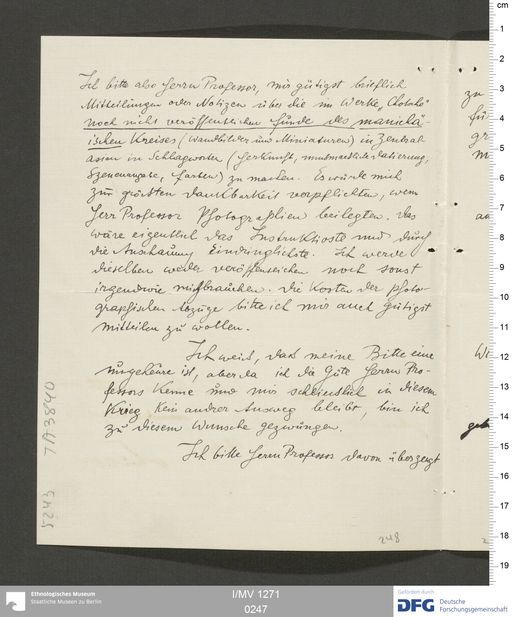 Ich bitte also Herrn Professor, mir gütigst brieflich
Mitteilungen oder Notizen über die im Werke „Chotscho“
noch nicht veröffentlichten Funde des manichä-
ischen Kreises (Wandbilder und Miniaturen) in Zentral
asien in Schlagworten (Herkunft, mutmaßliche Datierung,
Szenenangabe, Farben) zu machen. Es würde mich
zur größten Dankbarkeit verpflichten, wenn
Herr Professor Photographien beilegten. Das
wäre eigentlich das Instruktivste und durch
die Anschauung Eindringlichste. Ich werde
dieselben weder veröffentlichen noch sonst
irgendwie mißbrauchen. Die Kosten der photo-
graphischen Abzüge bitte ich mir auch gütigst
mitteilen zu wollen.
Ich weiß, daß meine Bitte eine
ungeheure ist, aber da ich die Güte Herrn Pro-
fessors kenne und mir schließlich in diesem
Krieg kein andrer Ausweg bleibt, bin ich
zu diesem Wunsche gezwungen.
Ich bitte Herrn Professor davon überzeugt
248
I/MV 1271
0247
Ethnologisches Museum
Staatliche Museen zu Berlin
Gefördert durch
DFG Deutsche
Forschungsgemeinschaft
cm
1
2
3
4
5
6
7
8
9
10
11
12
13
14
15
16
17
18
19